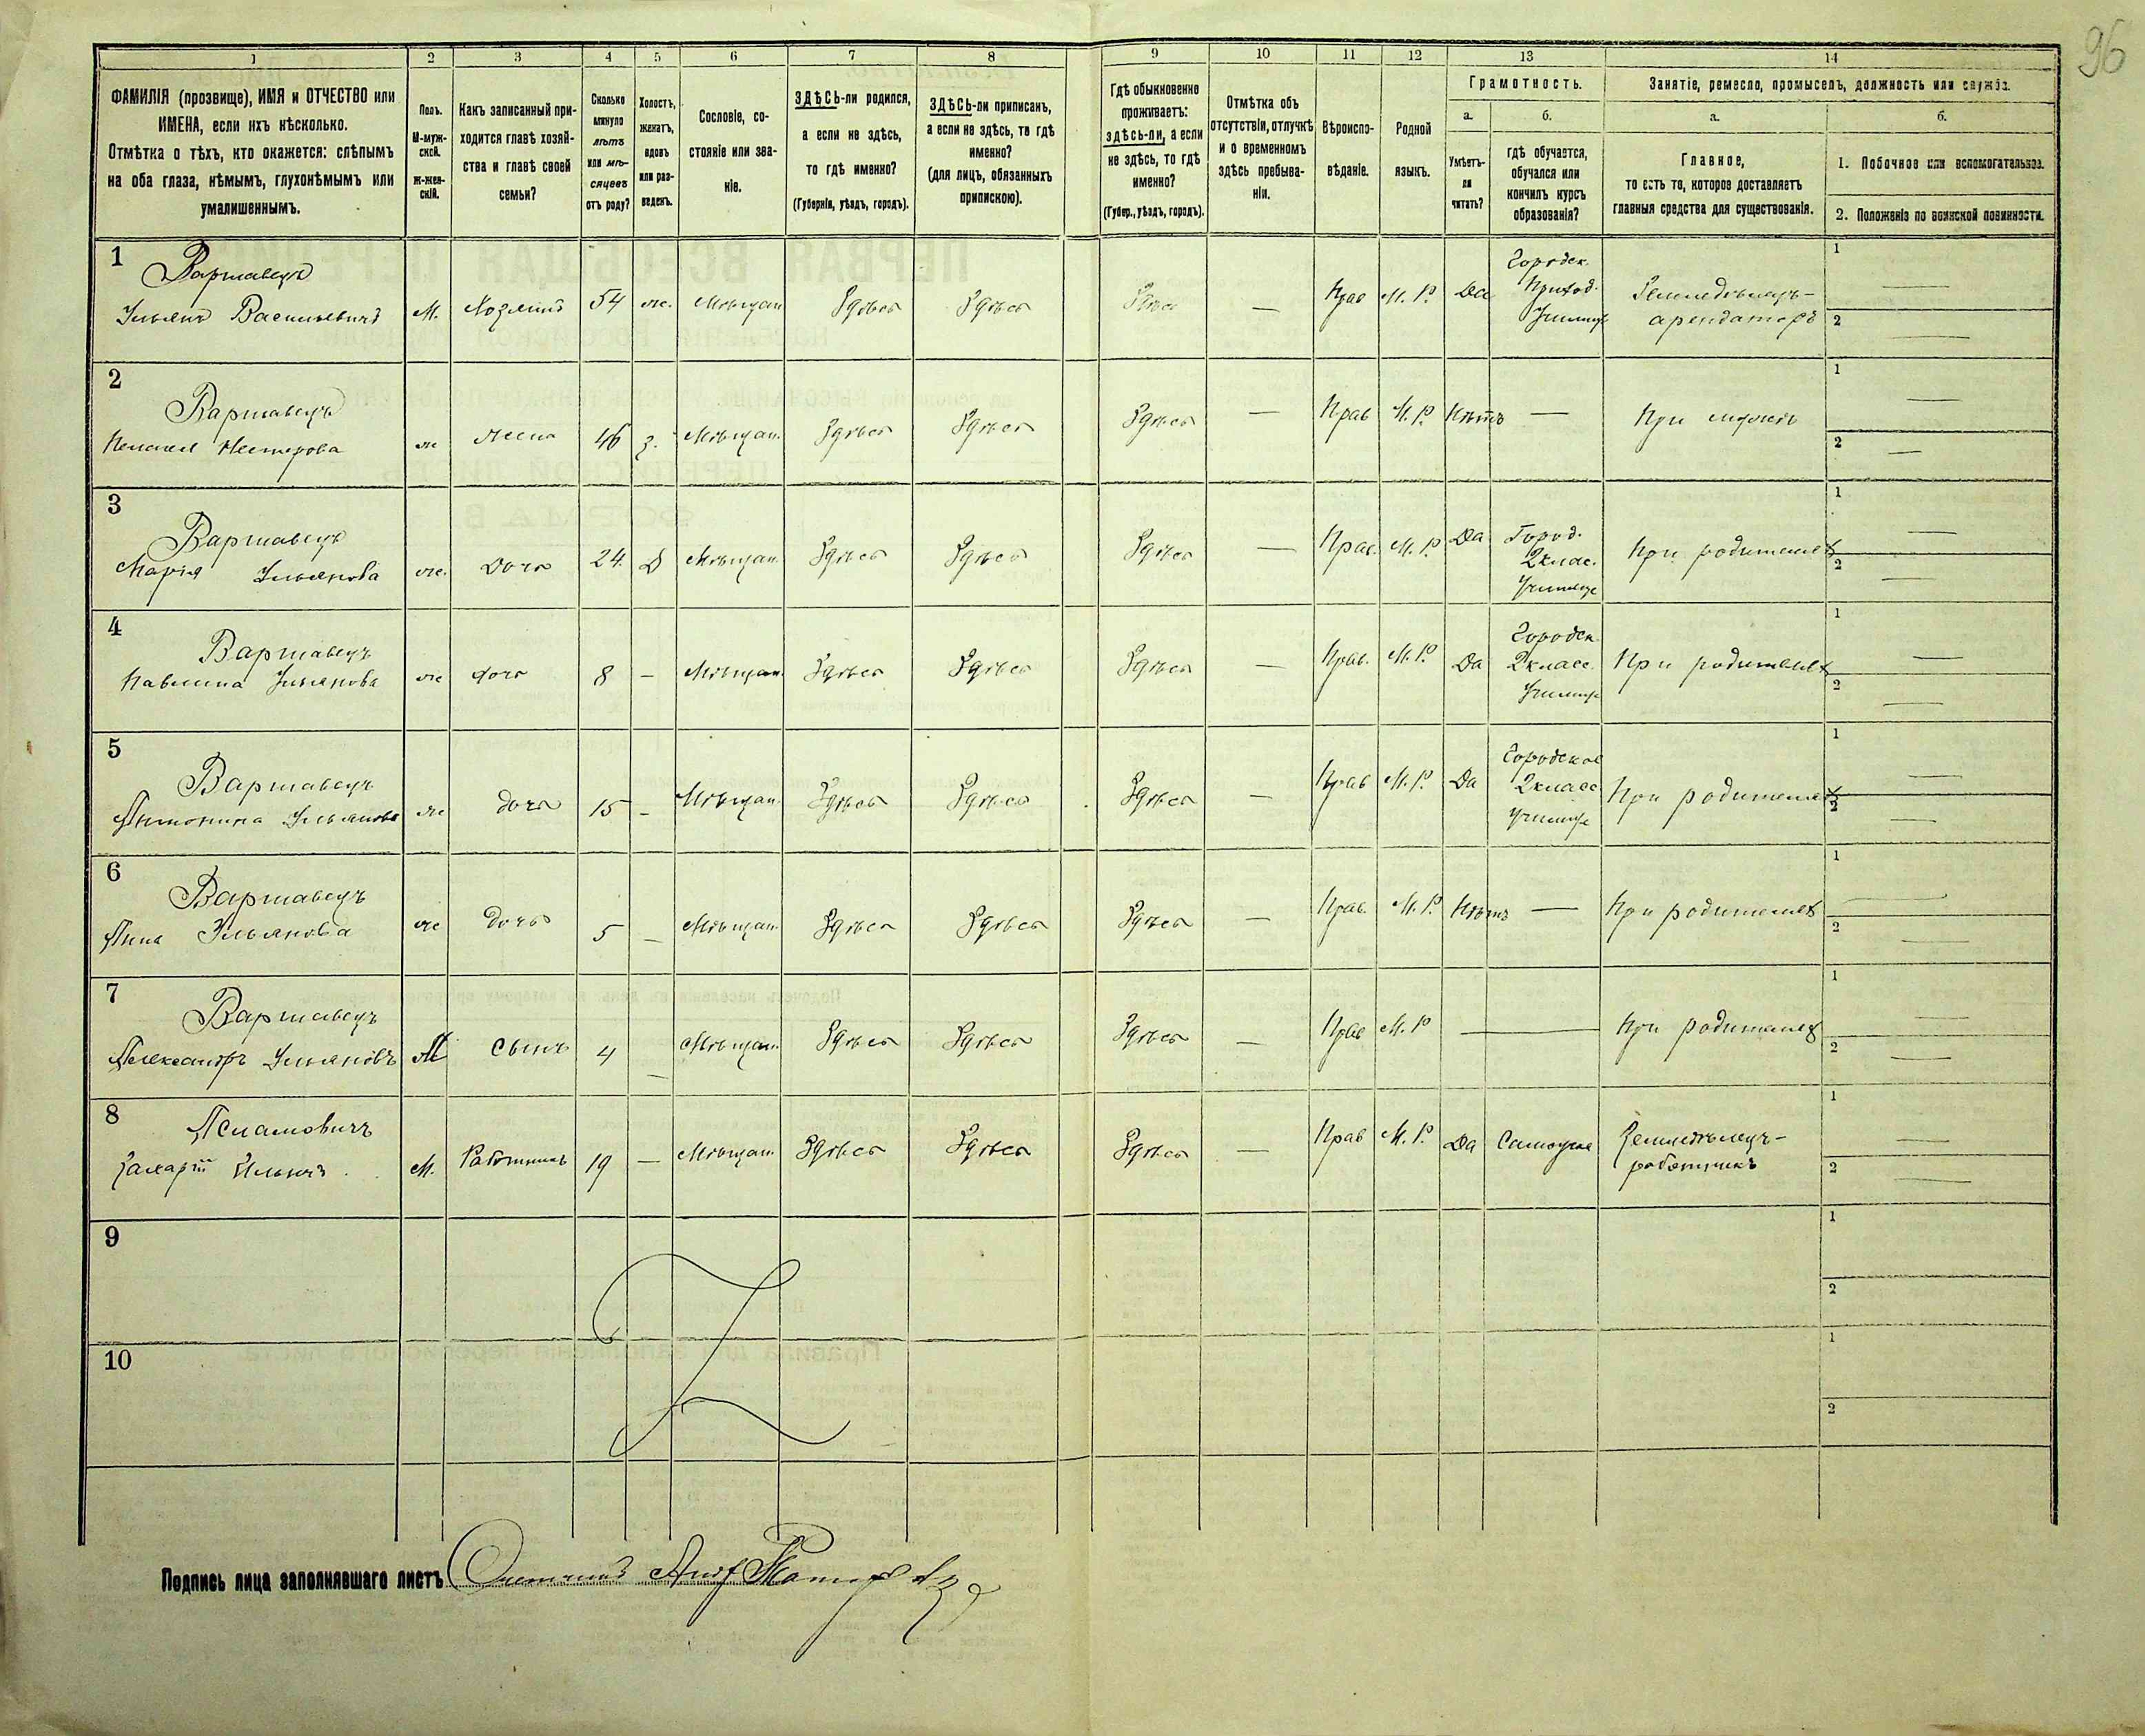 96
1 2 3 4 5 6 7 8 9 10 11 12 13 14
ФАМИЛІЯ (прозвище), ИМЯ и ОТЧЕСТВО или
ИМЕНА, если ихъ нѣсколько.
Отмѣтка о тѣхъ, кто окажется: слѣпымъ
на оба глаза, нѣмымъ, глухонѣмымъ или
умалишеннымъ.
Полъ.
М-муж-
ской.
Ж-жен-
скій.
Какъ записанный при-
ходится главѣ хозяй-
ства и главѣ своей
семьи?
Сколько
минуло
лѣтъ
или мѣ-
сяцевъ
отъ роду?
Холостъ,
женатъ,
вдовъ
или раз-
веденъ.
Сословіе, со-
стояніе или зва-
ніе.
ЗДѢСЬ-ли родился,
а если не здѣсь,
то гдѣ именно?
(Губернія, уѣздъ, городъ).
ЗДѢСЬ-ли приписанъ,
а если не здѣсь, то гдѣ
именно?
(для лицъ, обязанныхъ
припискою).
Гдѣ обыкновенно
проживаетъ:
здѣсь-ли, а если
не здѣсь, то гдѣ
именно?
(Губер., уѣздъ, городъ).
Отмѣтка объ
отсутствіи, отлучкѣ
и о временномъ
здѣсь пребыва-
ніи.
Вѣроиспо-
вѣданіе.
Родной
языкъ.
Грамотность.
а.
Умѣетъ-
ли
читать?
б.
гдѣ обучается,
обучался или
кончилъ курсъ
образованія?
Занятіе, ремесло, промыселъ, должность или служба.
а.
Главное,
то есть то, которое доставляетъ
главныя средства для существованія.
б.
1. Побочное или вспомогательное.
2. Положеніе по воинской повинности.
1
Варшавецъ
Ульянъ Васильевичъ М. Хозяинъ 54 ж. Мѣщан Здѣсь Здѣсь Здѣсь — Прав М. Р. Да
Городск.
Приход.
Училище
Земледѣлецъ-
арендаторъ
1 —
2 —
2
Варшавецъ
Нестерова ж жена 46 з. Мѣщан. Здѣсь Здѣсь Здѣсь — Прав М. Р. Нѣтъ — При мужѣ
1 —
2 —
3
Варшавецъ
Марія Ульянова ж. Дочь 24 Д Мѣщан. Здѣсь Здѣсь Здѣсь — Прав. М. Р. Да
Город.
2 клас.
Училище
При родителях
1 —
2 —
4
Варшавецъ
Павлина Ульянова ж дочь 8 — Мѣщан. Здѣсь Здѣсь Здѣсь — Прав. М. Р. Да
Городск.
2 класс.
Училище
При родителях
1 —
2 —
5
Варшавецъ
Антонина Ульянова ж дочь 15 - Мѣщан. Здѣсь Здѣсь Здѣсь — Прав М. Р. Да
Городское
2 класс
училище
При родителях
1 —
2 —
6
Варшавецъ
Анна Ульянова ж Дочь 5 — Мѣщан. Здѣсь Здѣсь Здѣсь — Прав. М. Р. Нѣтъ — При родителях
1 —
2 —
7
Варшавецъ
Александръ Ульяновъ М Сынъ 4 — Мѣщан. Здѣсь Здѣсь Здѣсь — Прав М. Р — При родителях
1 —
2 —
8
Асламовичъ
Захарій Ильичъ М. Работникъ 19 — Мѣщан. Здѣсь Здѣсь Здѣсь — Прав М. Р. Да Самоучка
Земледѣлецъ-
работникъ
1 —
2 —
9
1
2
10
1
2
Подпись лица заполнявшаго листъ